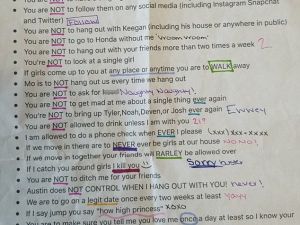 You are NOT to follow them on any social media (including Instagram Snapchat
and Twitter) Follow
You are NOT to hang out with Keegan (including his house or anywhere in public)
You are NOT to go to Honda without me Vroom vroom
You are NOT to hang out with your friends more than two times a week 2
You're NOT to look at a single girl
If girls come up to you at any place or anytime you are to WALK away
Mo is to NOT hang out us every time we hang out
You are NOT to ask for Naughty Naughty!
You are NOT to get mad at me about a single thing ever again
You're NOT to bring up Tyler,Noah,Diven,or Josh ever again Ewwey
You are NOT allowed to drink unless I am with you 21?
I am allowed to do a phone check when EVER I please (xxx)xxx-xxxx
If we move in there are to NEVER ever be girls at our house No No!
If we move in together your friends will RARLEY be allowed over
If I catch you around girls I kill you Sorry
You are NOT to ditch me for your friends
Austin does NOT CONTROL WHEN I HANG OUT WITH YOU! never!
We are to go on a legit date once every two weeks at least yayy
If I say jump you say "how high princess" xoxo
You are to make sure you tell me you love me once a day at least so I know your